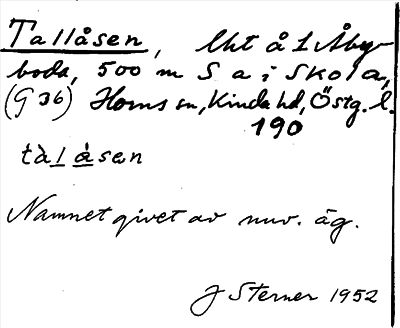 Tallåsen, lht å 1 Åby-
boda, 500 m S a i Skola,
(G 36) Horns sn, Kinda hd, Östg. l.
190
tàlåsen
Namnet givet av nuv. äg.
J Sterner 1952